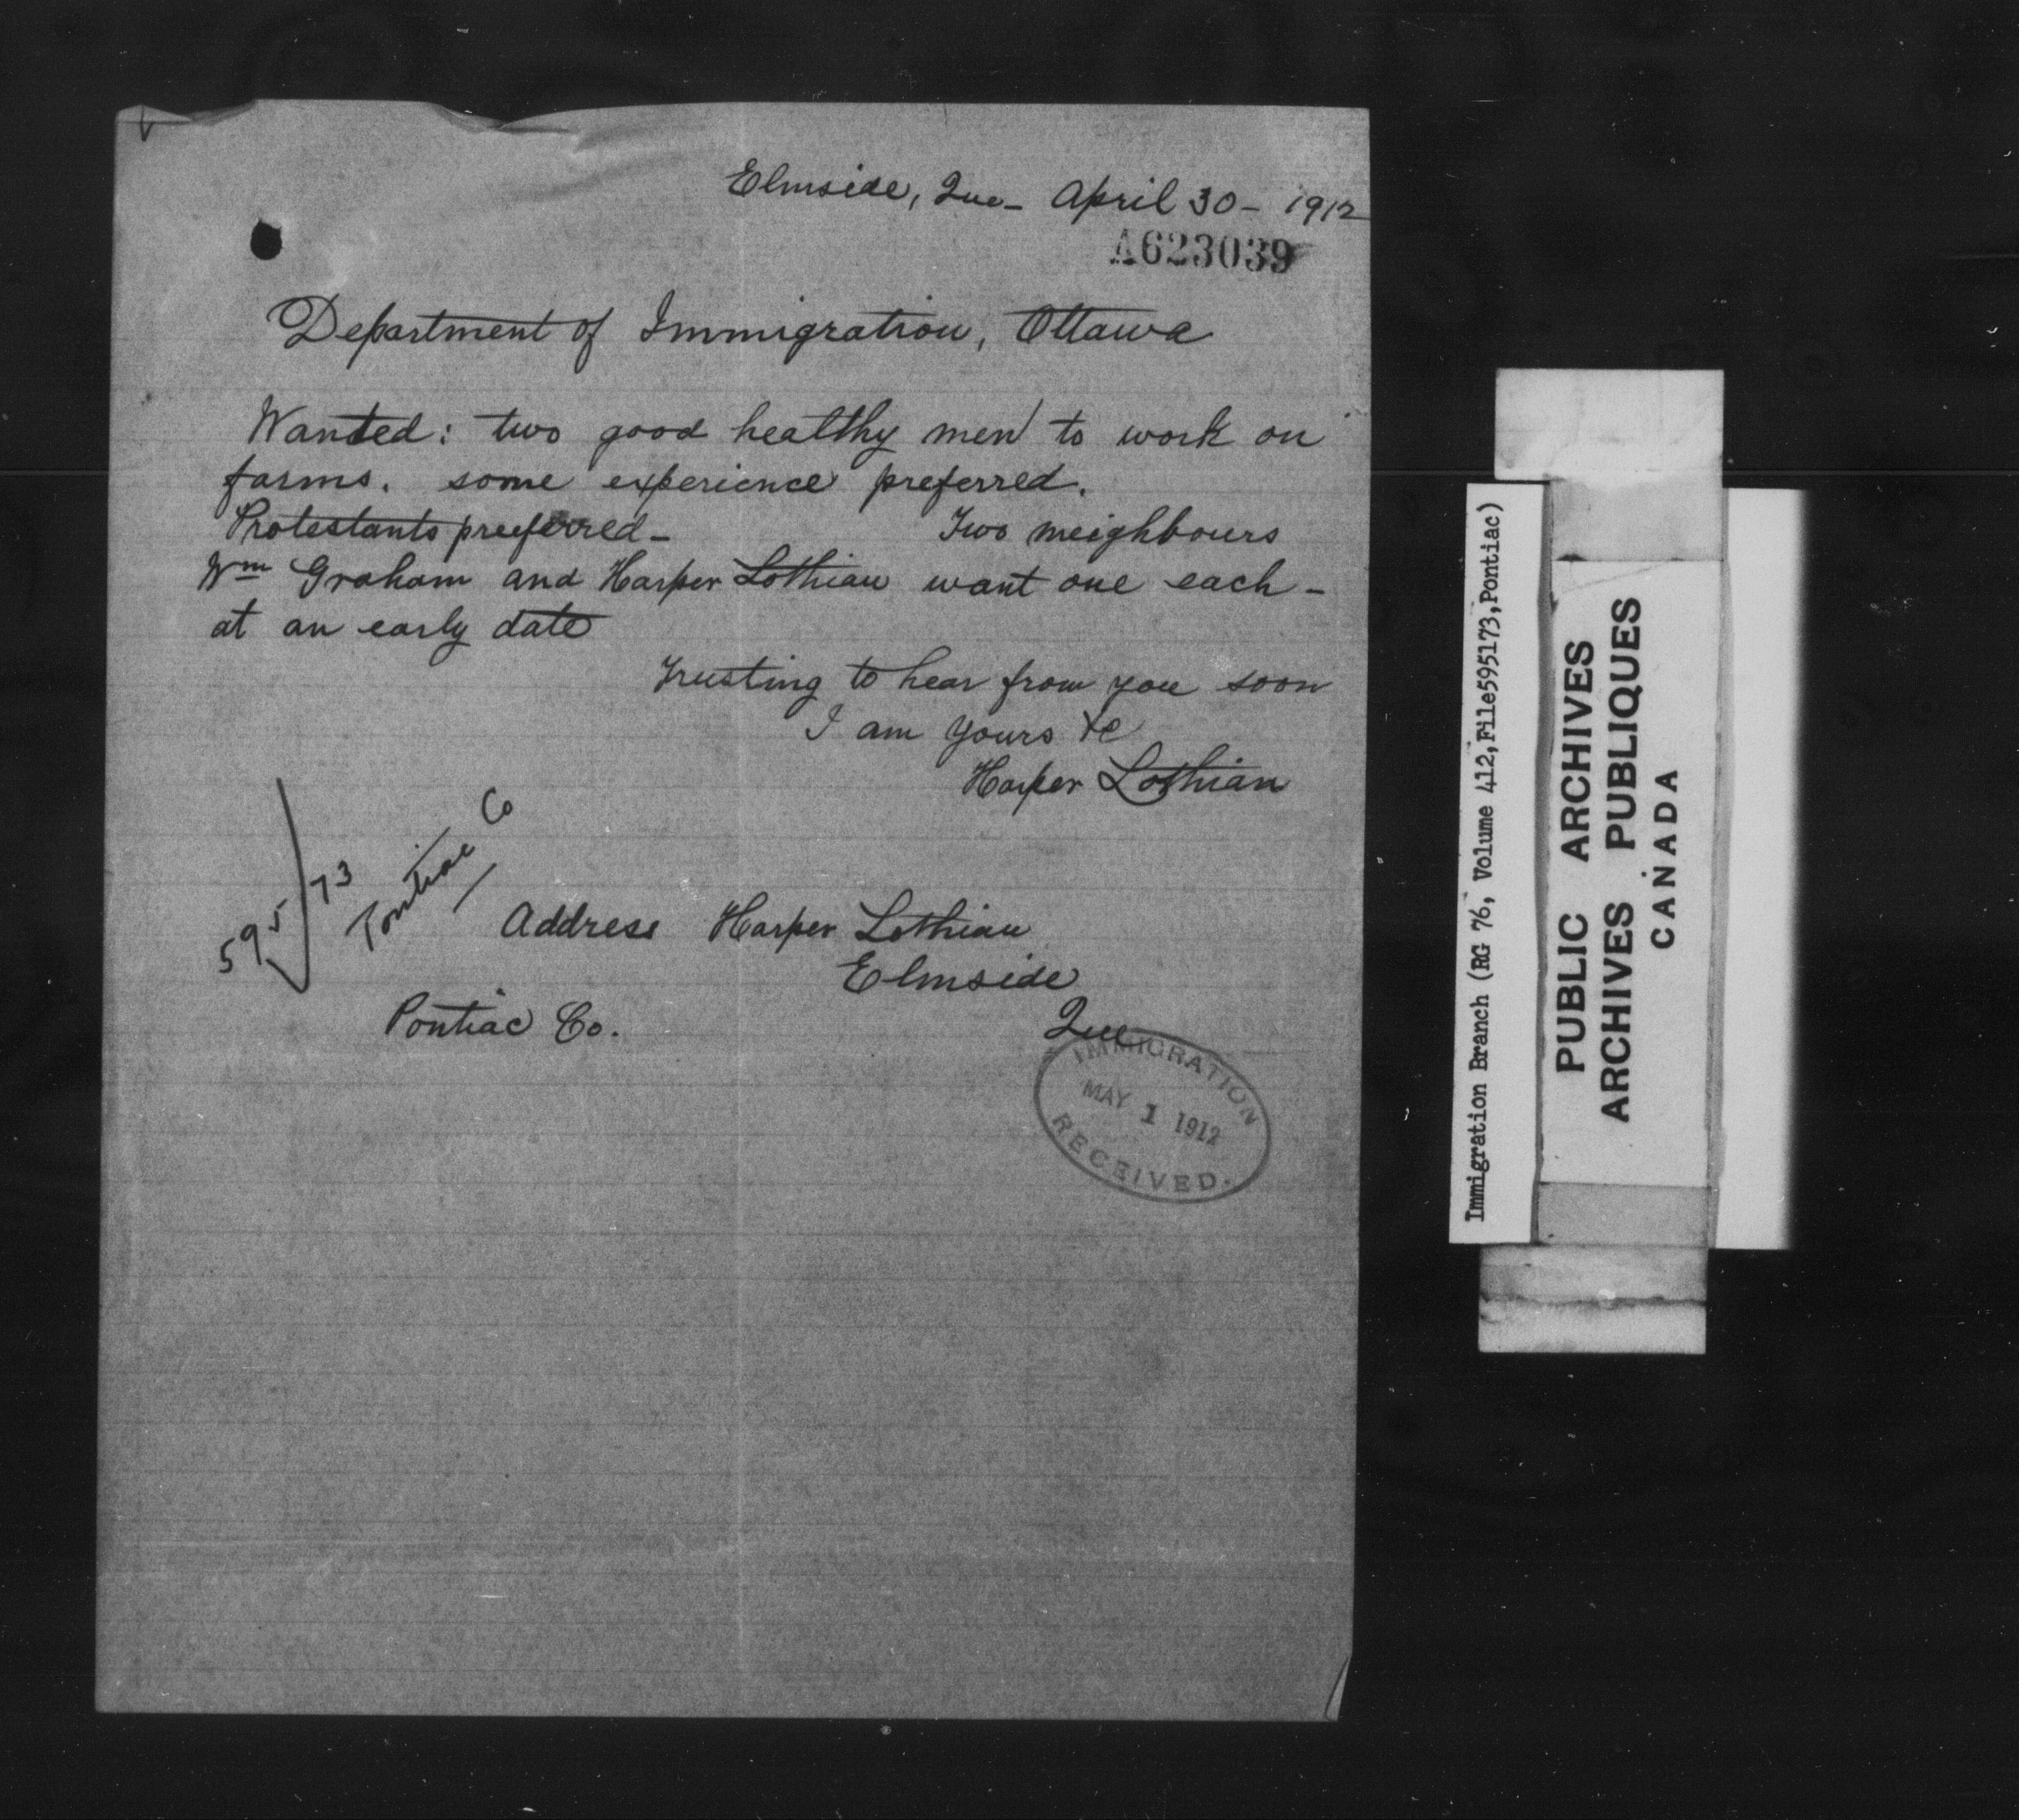 Elmside, Que- April 30- 1912
A623039
Department of Immigration, Ottawa
Wanted: two good healthy men to work on
farms. some experience preferred.
Protestants preeferred- Two neighbours
Wm Graham and Harper Lothian want one each-
at an early date
Trusting to hear from you soon
I am Yours &c
Harper Lothian
595173
Pontiac Co
Address Harper Lothian
Elmside
Pontiac Co. Que
IMMIGRATION
MAY 1 1912
RECEIVED.
Immigration Branch (RG 76, Volume 412,File595173,Pontiac)
PUBLIC ARCHIVES
ARCHIVES PUBLIQUES
CANADA